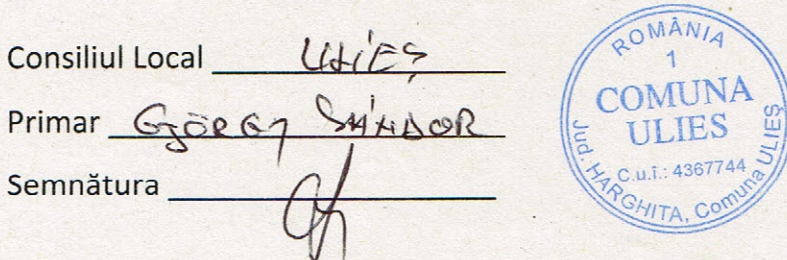 Consiliul Local ULIEȘ
Primar GYÖRGY SÁNDOR
Semnătura
ROMÂNIA
1
COMUNA
ULIES
C.u.î.: 4367744
Jud. HARGHITA, Comuna ULIEȘ